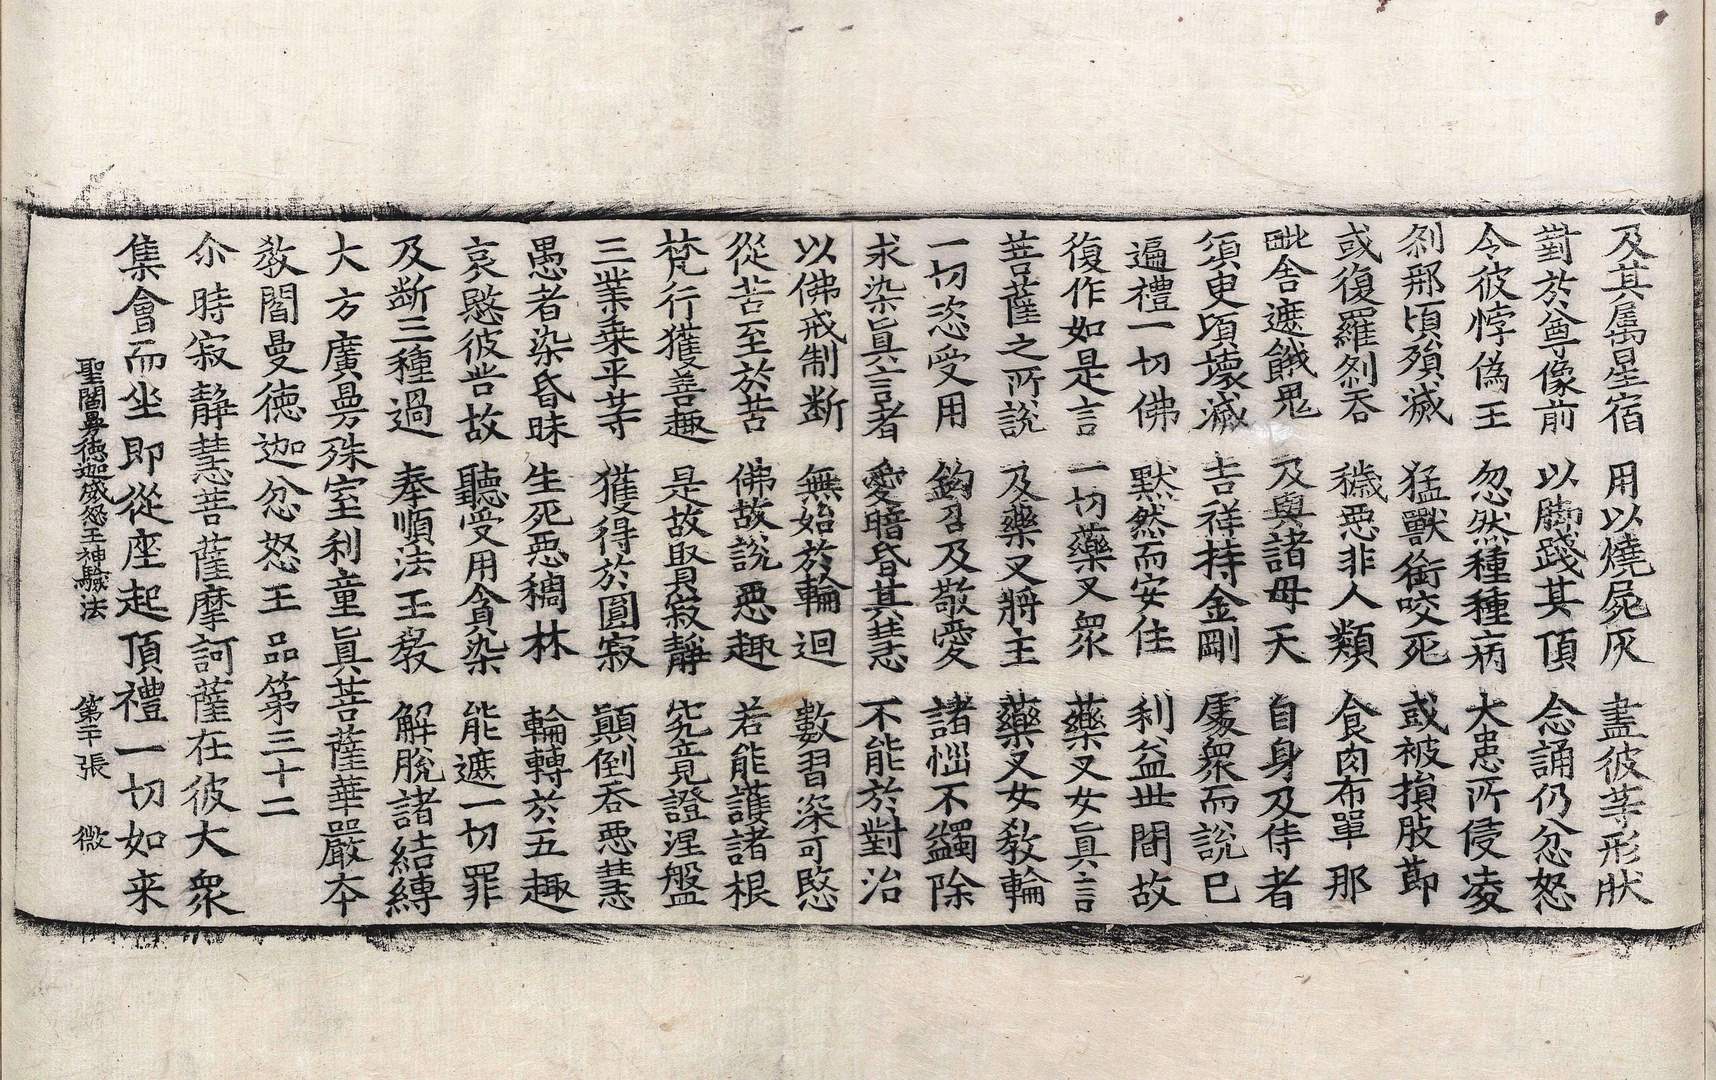 及其属星宿 用以燒屍灰 盡彼等形狀
對於尊像前 以脚踐其頂 念誦仍忿怒
令彼悖偽王 忽然種種病 大患所侵凌
剎那頃殞滅 猛獸銜咬死 或被損肢節
或復羅剎吞 穢惡非人類 食肉布單那
毗舍遮餓鬼 及與諸母天 自身及侍者
須臾頃壞滅 吉祥持金剛 處衆而說已
遍禮一切佛 默然而安住 利益世間故
復作如是言 一切藥叉衆 藥叉女眞言
菩薩之所說 及藥叉將主 藥叉女教輪
一切恣受用 鉤召及敬愛 諸惱不蠲除
求染眞言者 愛暗昏其慧 不能於對治
以佛戒制断 無始於輪迴 數習深可愍
從苦至於苦 佛故說惡趣 若能護諸根
梵行獲善趣 是故賢寂靜 究竟證涅盤
三業乗平等 獲得於圓寂 顛倒吞惡慧
愚者染昏昧 生死惡稠林 輪轉於五趣
哀愍彼岩故 聽受用貪染 能遮一切罪
及断三種過 奉順法王教 解脫諸結縛
大方廣曼殊室利童眞菩薩華嚴本
教閻曼德迦忿怒王品第三十二
尒時寂靜慧菩薩摩訶薩在彼大衆
集會而坐即從座起頂禮一切如来
聖閻曼德迦威怒王神驗法 第千張 微